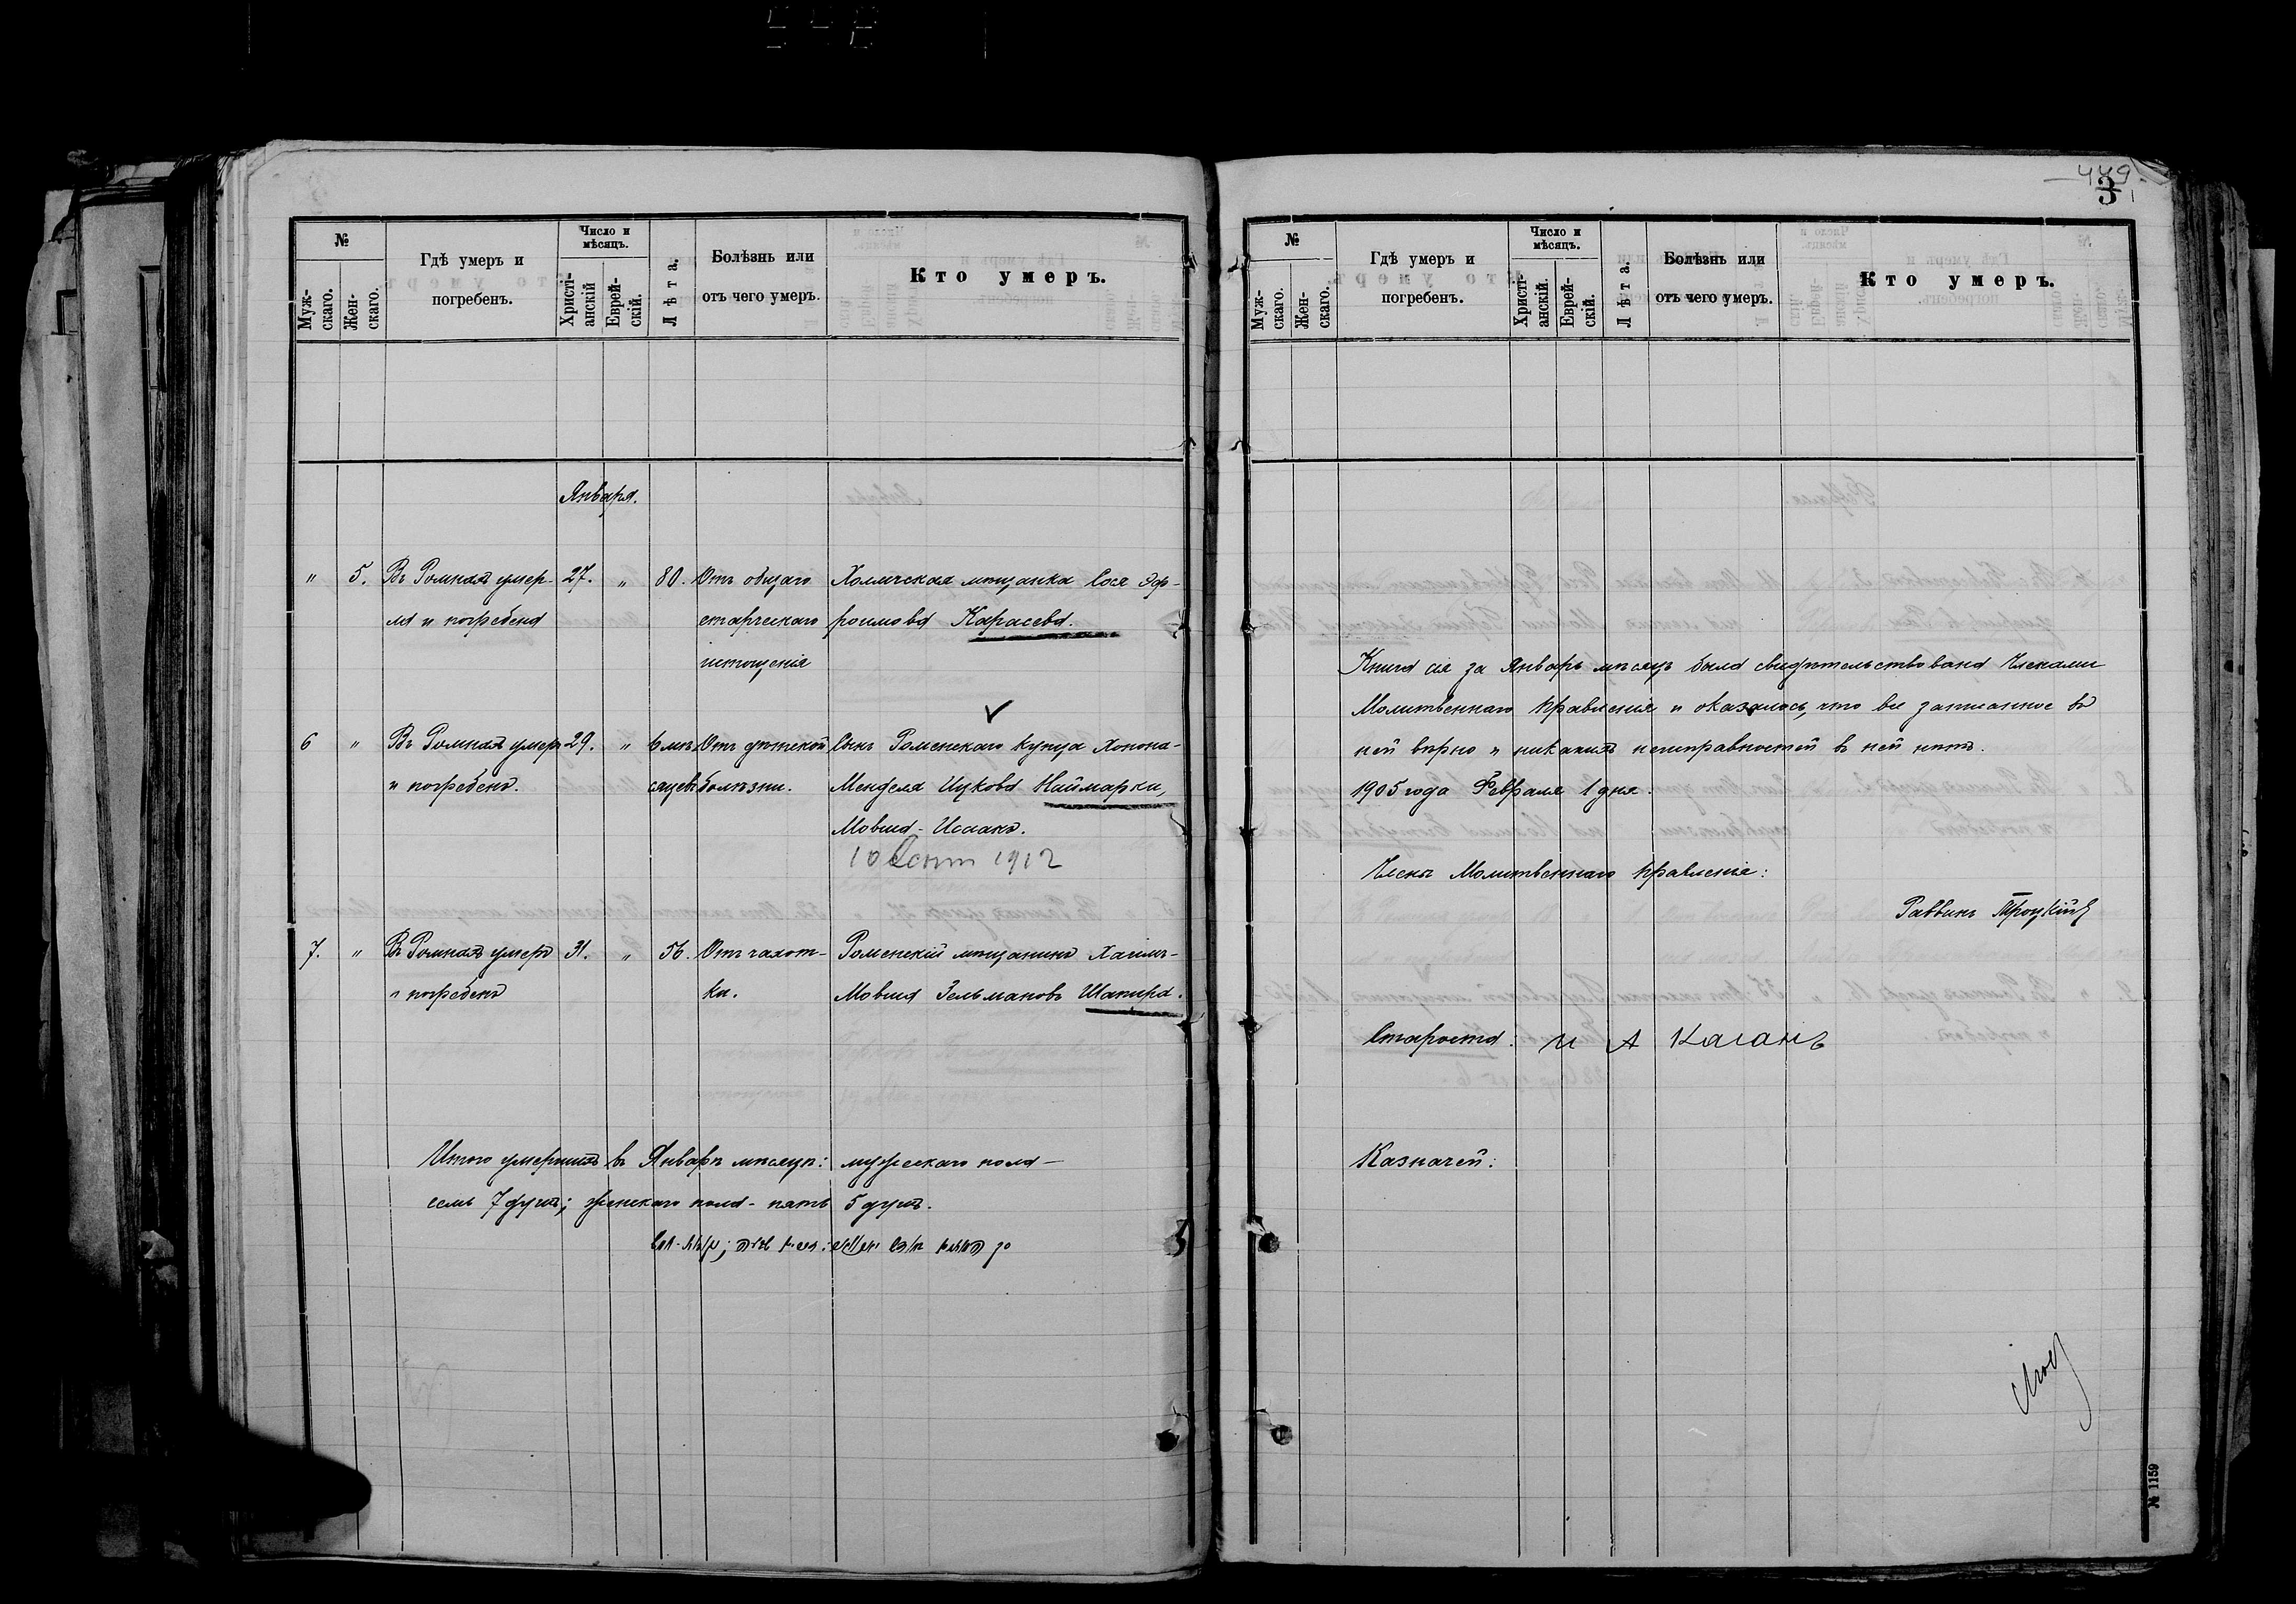 №
Муж-
скаго.
Жен-
скаго.
Гдѣ умеръ и
погребенъ.
Число и
мѣсяцъ.
Христі-
анскій
Еврей-
скій.
Лѣта.
Болѣзнь или
отъ чего умеръ.
Кто умеръ.
Января.
" 5. Въ Ромнахъ умер- 27. " 80. Отъ общаго Холмская мѣщанка Сося Эф-
ла и погребена старческаго роимова Карасева.
истощенія
6 " Въ Ромнахъ умеръ 29. " 6 мѣ- Отъ дѣтской Сынъ Роменскаго купца Хонона-
и погребенъ. сяцевъ болѣзни. Менделя Ицкова Наймарка,
Мовша-Исаакъ.
10 Сент 1912
7. " Въ Ромнахъ умеръ 31. " 56. Отъ чахот- Роменскій мѣщанинъ Хаимъ-
и погребенъ ки. Мовша Зельмановъ Шапиро.
Итого умершихъ въ Январѣ мѣсяцѣ: мужескаго пола —
семь 7 душъ; женскаго пола - пять 5 душъ.
3
479
3
№
Муж-
скаго.
Жен-
скаго.
Гдѣ умеръ и
погребенъ.
Число и
мѣсяцъ.
Христі-
анскій.
Еврей-
скій.
Лѣта.
Болѣзнь или
отъ чего умеръ.
Кто умеръ.
Книга сія за Январь мѣсяцъ была свидѣтельствована Членами
Молитвеннаго Правленія и оказалось, что все записанное въ
ней вѣрно и никакихъ неисправностей въ ней нѣтъ.
1905 года Февраля 1 дня.
Члены Молитвеннаго Правленія:
Раввинъ Троцкій
Староста: И А Каганъ
Казначей:
№ 1159